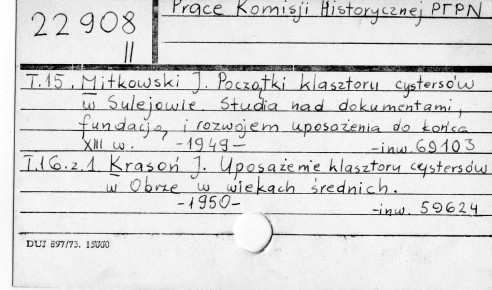 22908
II
Prace Komisji Historycznej PTPN
T.15. Mitkowski J. Początki klasztoru cystersów
w Sulejowie. Studia nad dokumentami,
fundacją, i rozwojem uposażenia do końca
XIII w. -1949- -inw. 69103
T.16.z.1. Krasoń J. Uposażenie klasztoru cystersów
w Obrze w wiekach średnich.
-1950- -inw. 59624
DUJ 897/73. 15000